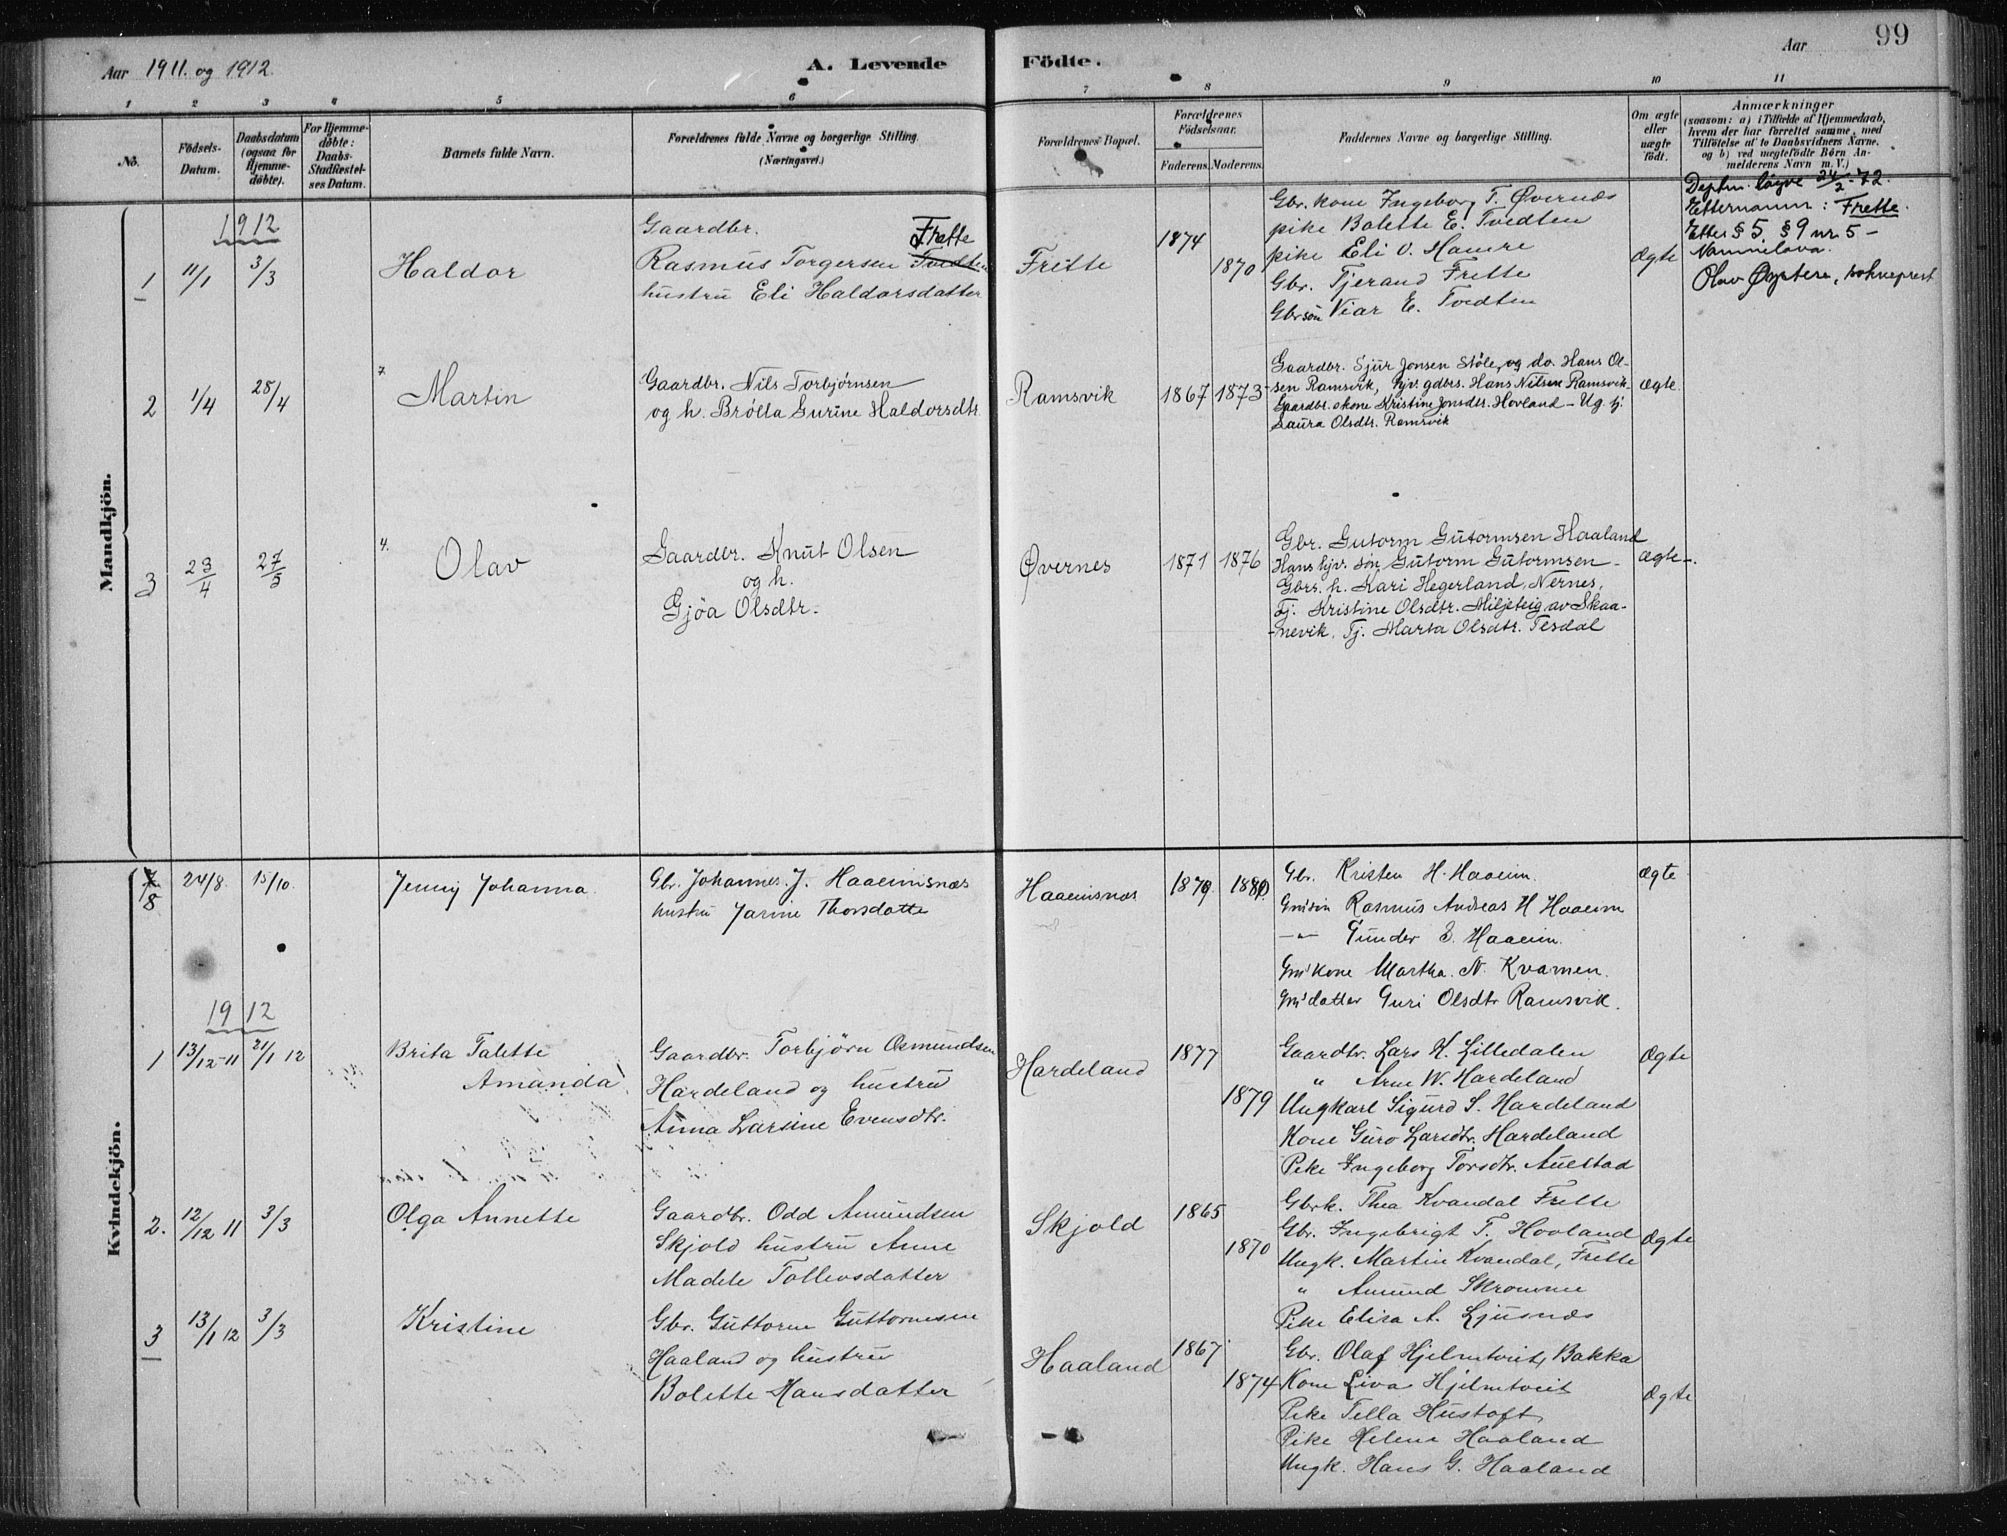 Aar 1911. og 1912.
A. Levende
Födte.
Aar
99
1 2 3 4 5 6 7 8 9 10 11
No.
Födsels-Datum.
Daabsdatum (ogsaa for Hjemme-döbte).
For Hjemme-döbte: Daabs-Stadfæstel-ses Datum.
Barnets fulde Navn.
Forældrenes fulde Navne og borgerlige Stilling. (Næringsvei.)
Forældrenes Bopæl.
Forældrenes Födselsaar.
Faderens. Moderens.
Faddernes Navne og borgerlige Stilling.
Om ægte eller uægte födt.
Anmærkninger
(saasom: a) i Tilfælde af Hjemmedaab,
hvem der har forrettet samme, med
Tilföielse af to Daabsvidners Navne,
og b) ved uægtefödte Börn An-
melderens Navn m. V.)
Mandkjön.
1912
1 11/1 3/3 Haldor
Gaardbr.
Rasmus Torgersen Tvedten Frette
hustru Eli Haldorsdatter
Frette
1874
1870
Gbr. kone Ingeborg T. Øvernæs
pike Bolette E. Tvedten
pike Eli O. Hamre
Gbr. Tjerand Frette
Gbrsön Viar E. Tvedten
Ægte
Deptm. løyve 24/2-72.
Etternamn: Frette.
Etter § 5, § 9 nr 5 -
Namnelova.
Olav Øystese, sokneprest
2 1/4 28/4
7. Martin
Gaardbr. Nils Torbjørnsen
og h. Brølla Gurine Haldorsdtr
Ramsvik
1867 1873
Gaardbr. Sjur Jonsen Støle, og do. Hans Ol-
sen Ramsvik, hjv. gdbrs. Hans Nilsen Ramsvik
Gaardbr.skone Kristine Jonsdtr. Hovland - Ug. tj.
Laura Olsdtr. Ramsvik
ægte.
3 23/4 27/5
4. Olav
Gaardbr. Knut Olsen
og h.
Gjøa Olsdtr.
Øvernes
1871 1876
Gbr. Gutorm Gutormsen Haaland
Hans hjv. søn Gutorm Gutormsen -
Gbrs. h. Kari Hegerland, Nernes,
Tj. Kristine Olsdtr. Miljeteig av Skaa-
-nevik, Tj. Marta Olsdtr. Tesdal
ægte-.
Kvindekjön.
8 24/8. 15/10. Jenny Johanna.
Gbr. Johannes. J. Haaeimsnæs
hustru Jarine Thorsdatte
Haaeimsnæs
1879 1880
Gbr. Kristen H. Haaeim.
Rasmus Andreas H Haaeim
-"- Gunder E. Haaeim.
kone Martha. N. Kvamen.
datter Guri Olsdtr Ramsvik.
Ægte
1912
1 13/12-11 21/1 12 Brita Talette
Amanda
Gaardbr. Torbjørn Osmundsen
Hardeland og hustru
Anna Larsine Evensdtr.
Hardeland
1877
1879
Gaardbr. Lars K. Lilledalen
" Arne W. Hardeland
Ungkarl Sigurd S. Hardeland
Kone Guro Larsdtr. Hardeland
Pike Ingeborg Torsdtr. Auestad
Ægte
2. 12/12 11 3/3 Olga Annette
Gaardbr. Odd Amundsen
Skjold hustru Anne
Madele Tollevsdatter
Skjold
1865
1870
Gbrk. Thea Kvandal Frette
Gbr. Ingebrigt T. Hovland
Ungk. Martin Kvandal, Frette
" Amund Skromme
Pike Elisa A. Ljusnæs
Ægte
3 13/1 12 3/3 Kristine
Gbr. Guttorm Guttormsen
Haaland og hustru
Bolette Hansdatter
Haaland
1867
1874
Gbr. Olaf Hjelmtveit, Bakka
Kone Liva Hjelmtveit
Pike Tella Hustoft
Pike Helene Haaland
Ungk. Hans G. Haaland
Ægte